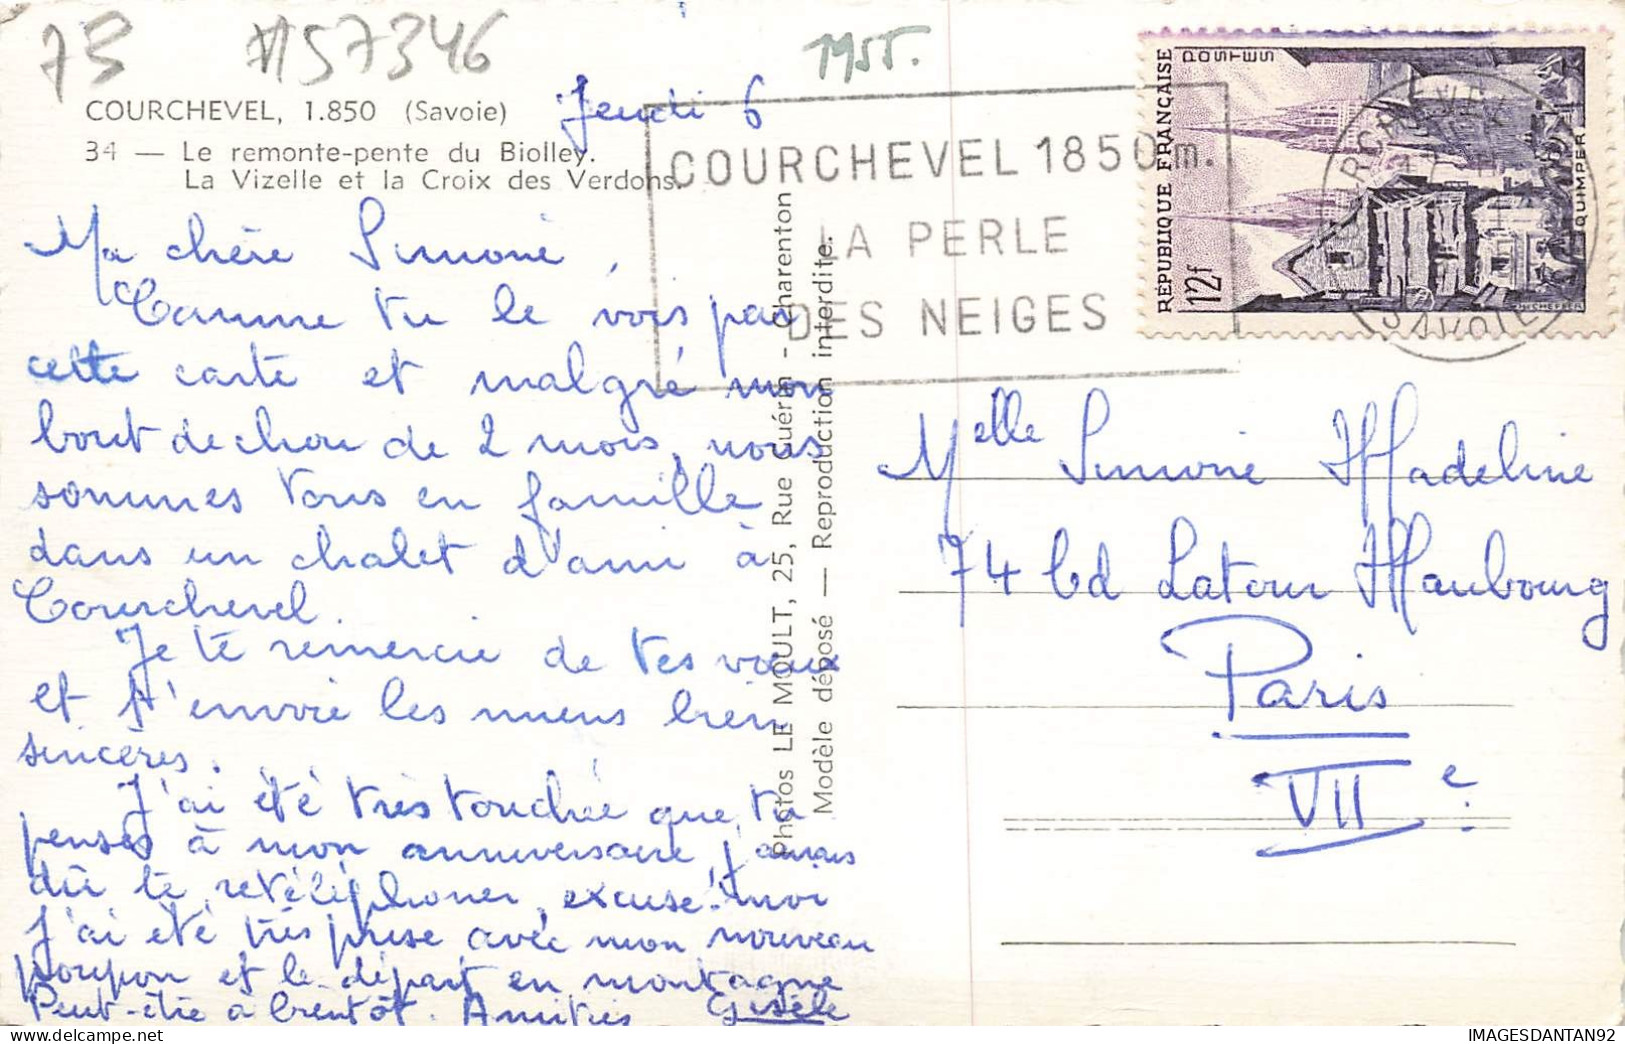 73 #57346
1955.
COURCHEVEL, 1.850 (Savoie)
34 — Le remonte-pente du Biolley.
La Vizelle et la Croix des Verdons.
Jeudi 6
COURCHEVEL 1850 m.
LA PERLE
DES NEIGES
RÉPUBLIQUE FRANÇAISE
POSTES
12f
QUIMPER
COURCHEVEL
SAVOIE
Ma chère Simone,
Comme tu le vois par
cette carte et malgré mon
bout de chou de 2 mois, nous
sommes tous en famille
dans un chalet d'ami à
Courchevel.
Je te remercie de tes vœux
et t'envoie les miens bien
sincères.
J'ai été très touchée que tu
penses à mon anniversaire, j'aurais
dû te retéléphoner, excuse-moi
j'ai été très prise avec mon nouveau
poupon et le départ en montagne
Peut-être à bientôt. Amitiés Gisèle
Photos LE MOULT, 25, Rue Guérin - Charenton
Modèle déposé — Reproduction interdite.
Melle Simone Madeline
74 bd Latour Maubourg
Paris
VIIe.
IMAGESDANTAN92